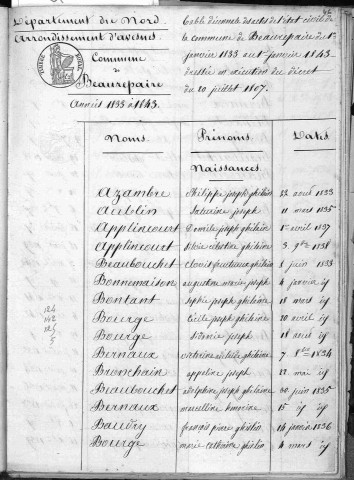 42
Département du Nord
Arrondissement d'avesnes
Commune
de
Beaurepaire
Années 1833 à 1843.
Table décennale des actes de l'état civil de
la commune de Beaurepaire du 1er
janvier 1833 au 1er janvier 1843
dressée en exécution du décret
du 20 juillet 1807.
Noms Prénoms Dates
Naissances
Azambre Philippe joseph ghislain 22 avril 1833
Aublin joseph 11 mars 1835
Applincourt joseph ghislain 1er avril 1837
Applincourt ghislain 3 9bre 1838
Beaubouchet ghislain 8 juin 1833
Bonnemaison joseph 4 janvier id
Bontant Sophie joseph ghislaine 18 mars id
Bourge Cécile joseph ghislaine 20 avril id
Bourge joseph 18 avril id
Bernaux ghislaine 7 8bre 1834
Bronchain appoline joseph 22 mai id
Beaubouchet adolphine joseph ghislaine 30 juin 1835
Bernaux marcelline 15 id
Baudry françois pierre ghislain 14 janvier 1836
Bourge marie catherine ghislain 4 mars id
124
142
125
5